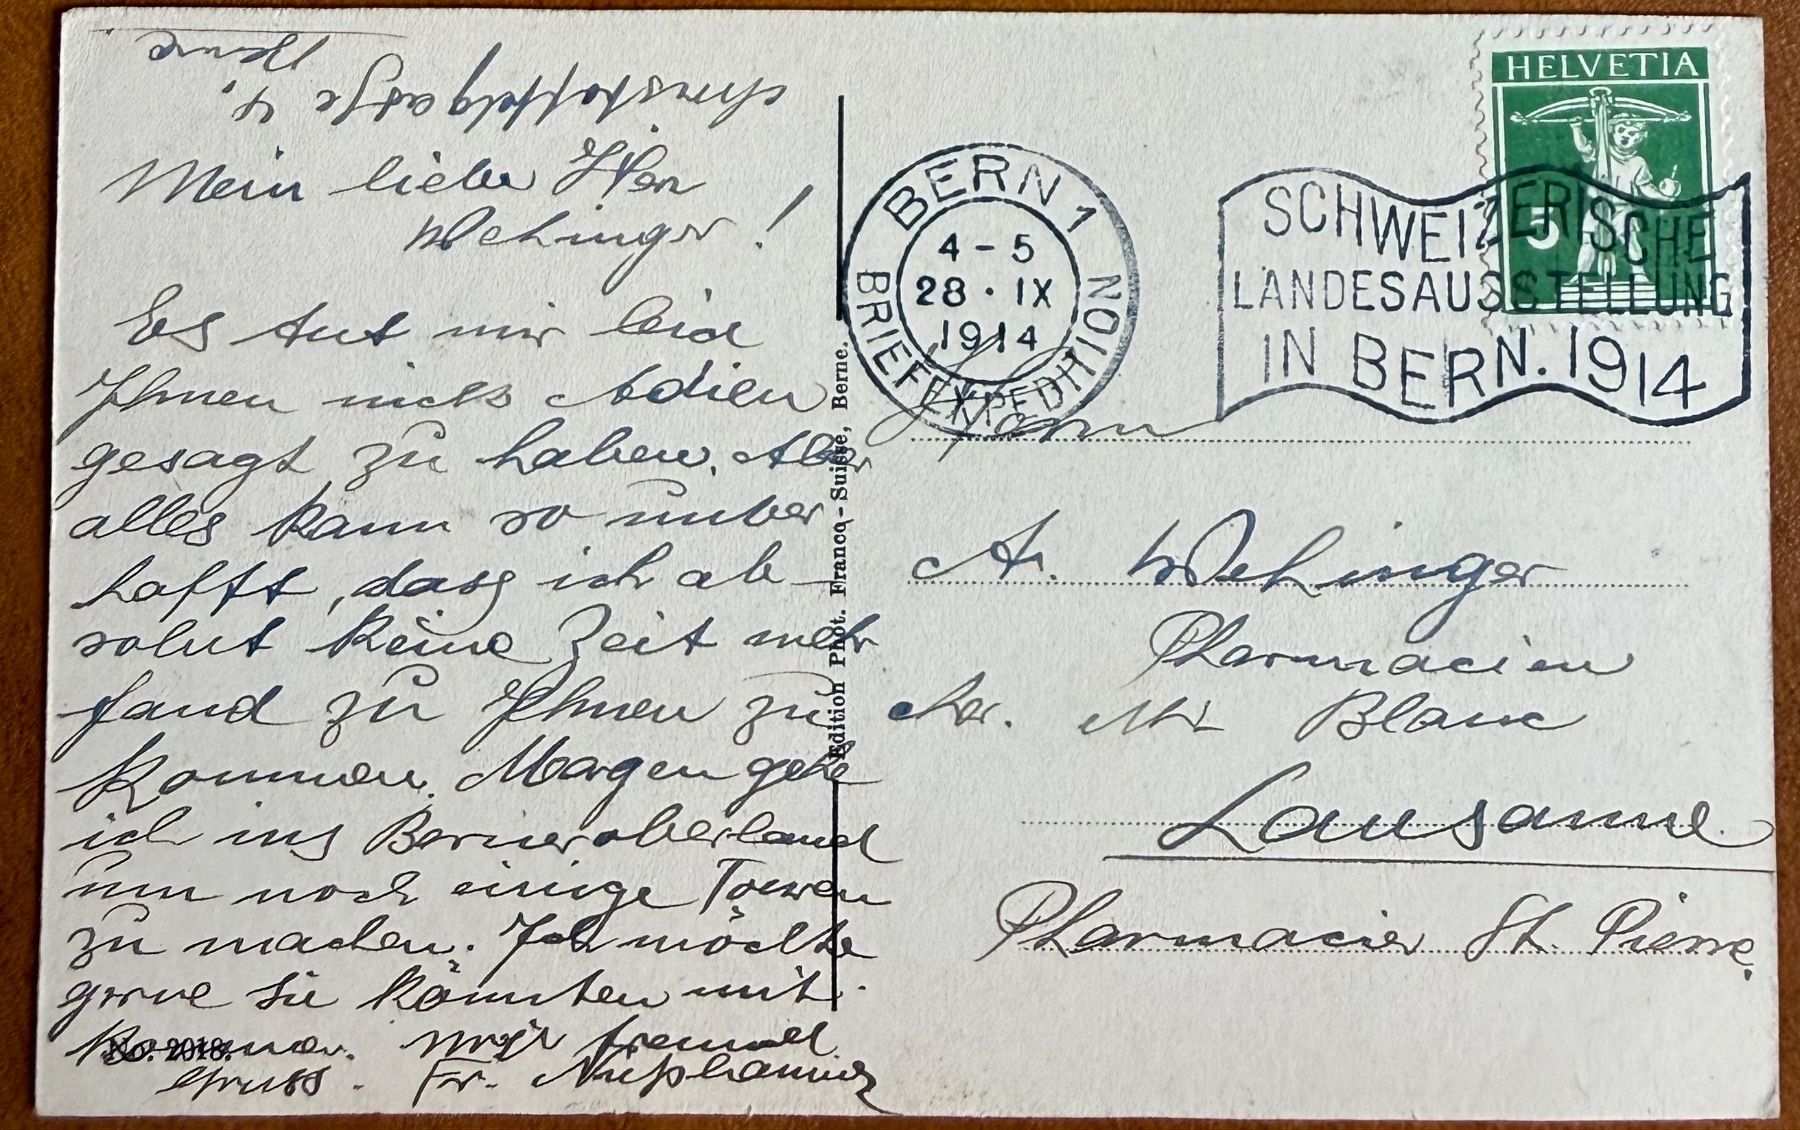 Christoffelgasse 4.
Berne
Mein lieber Herr
Wehinger!
Es tut mir leid
Ihnen nicht Adieu
gesagt zu haben. Aber
alles kam so unver
hofft, dass ich ab
solut keine Zeit mehr
fand zu Ihnen zu
kommen. Morgen gehe
ich ins Berneroberland
um noch einige Touren
zu machen. Ich möchte
gerne Sie könnten mit
kommen.
Gruss. Fr.
No. 2018.
Edition Phot. Franco-Suisse, Berne.
BERN 1
BRIEFEXPEDITION
4-5
28.IX
1914
HELVETIA
5
SCHWEIZERISCHE
LANDESAUSSTELLUNG
IN BERN. 1914
Herrn
A. Wehinger
Pharmacien
chez. Mr Blanc
Lausanne
Pharmacie St. Pierre.